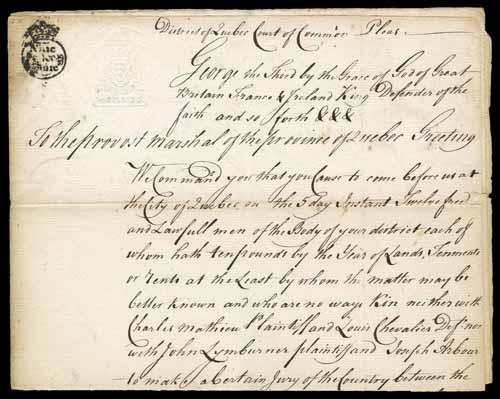 District of Quebec Court of Common Pleas
Nine
Pence
Sure
George the Third by the Grace of God of Great
Britain France & Ireland King Defender of the
faith and so forth &&&
To the provost marshal of the province of Quebec Greeting
We Command you that you Cause to come before us at
the City of Quebec on the 5 day Instant Twelve free
and Lawfull men of the Body of your district each of
whom hath ten pounds by the Year of Lands, Tenements
or Rents at the Least by whom the matter may be
better known and who are no ways Kin neither with
Charles mathieu Plaintiff and Louis Chevalier Def.nor
with John Lymburner plaintiff and Joseph Arbour
to make a Certain Jury of the Country between the